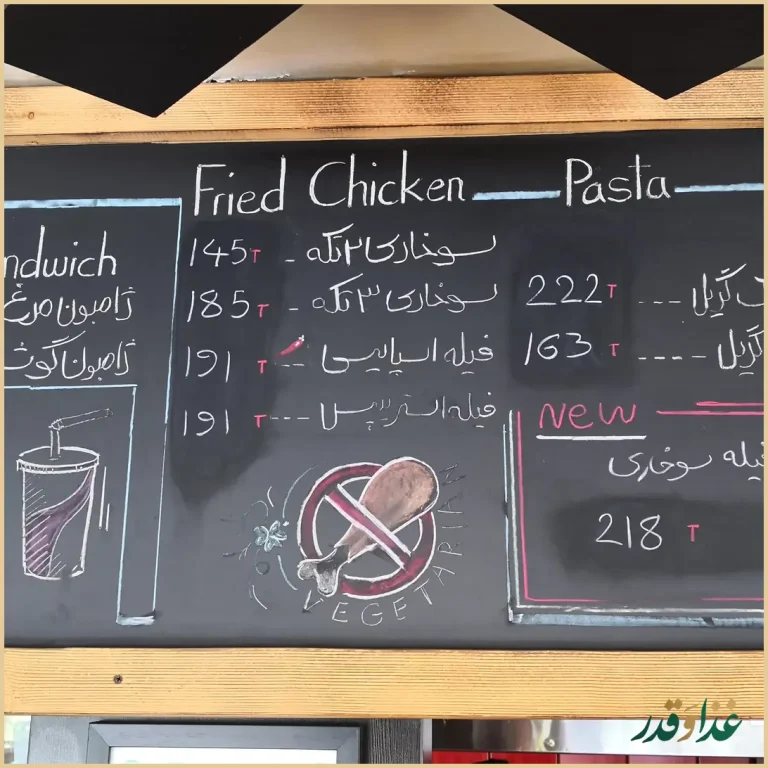 Fried Chicken
سوخاری ۲ تکه -- 145 T
سوخاری ۳ تکه -- 185 T
فیله اسپایسی --- 191 T
فیله استریپس --- 191 T
VEGETARIAN
Pasta
گریل --- 222 T
گریل ---- 163 T
New
فیله سوخاری
218 T
ndwich
ژامبون مرغ
ژامبون گوشت
غذا و قدر